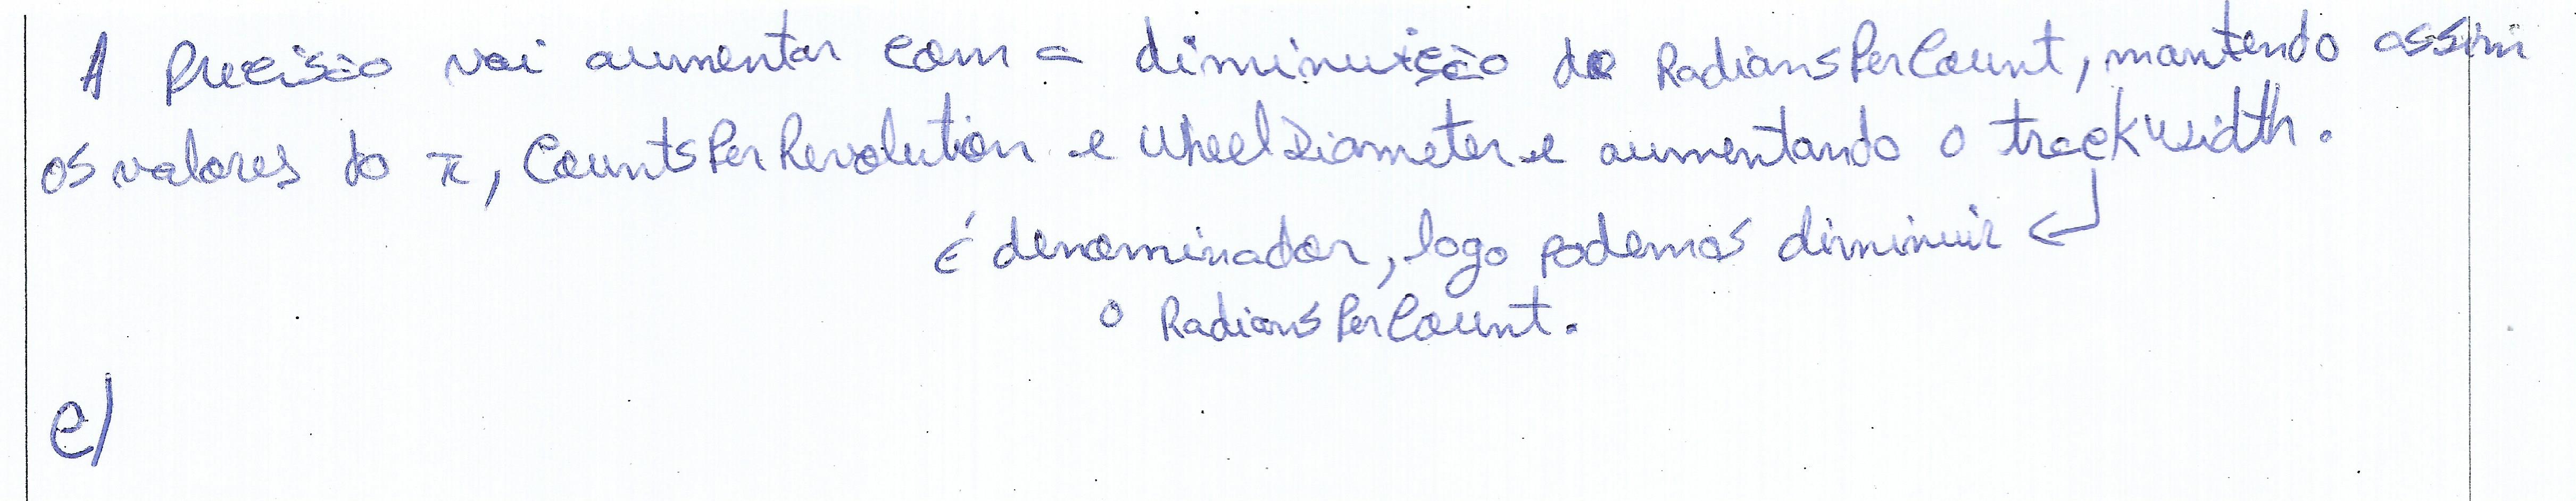 A precisão vai aumentar com a diminuição do RadiansPerCount, mantendo assim
os valores do π, CountsPerRevolution e WheelDiameter e aumentando o trackwidth.
É denominador, logo podemos diminuir ↵
o RadiansPerCount.
e)